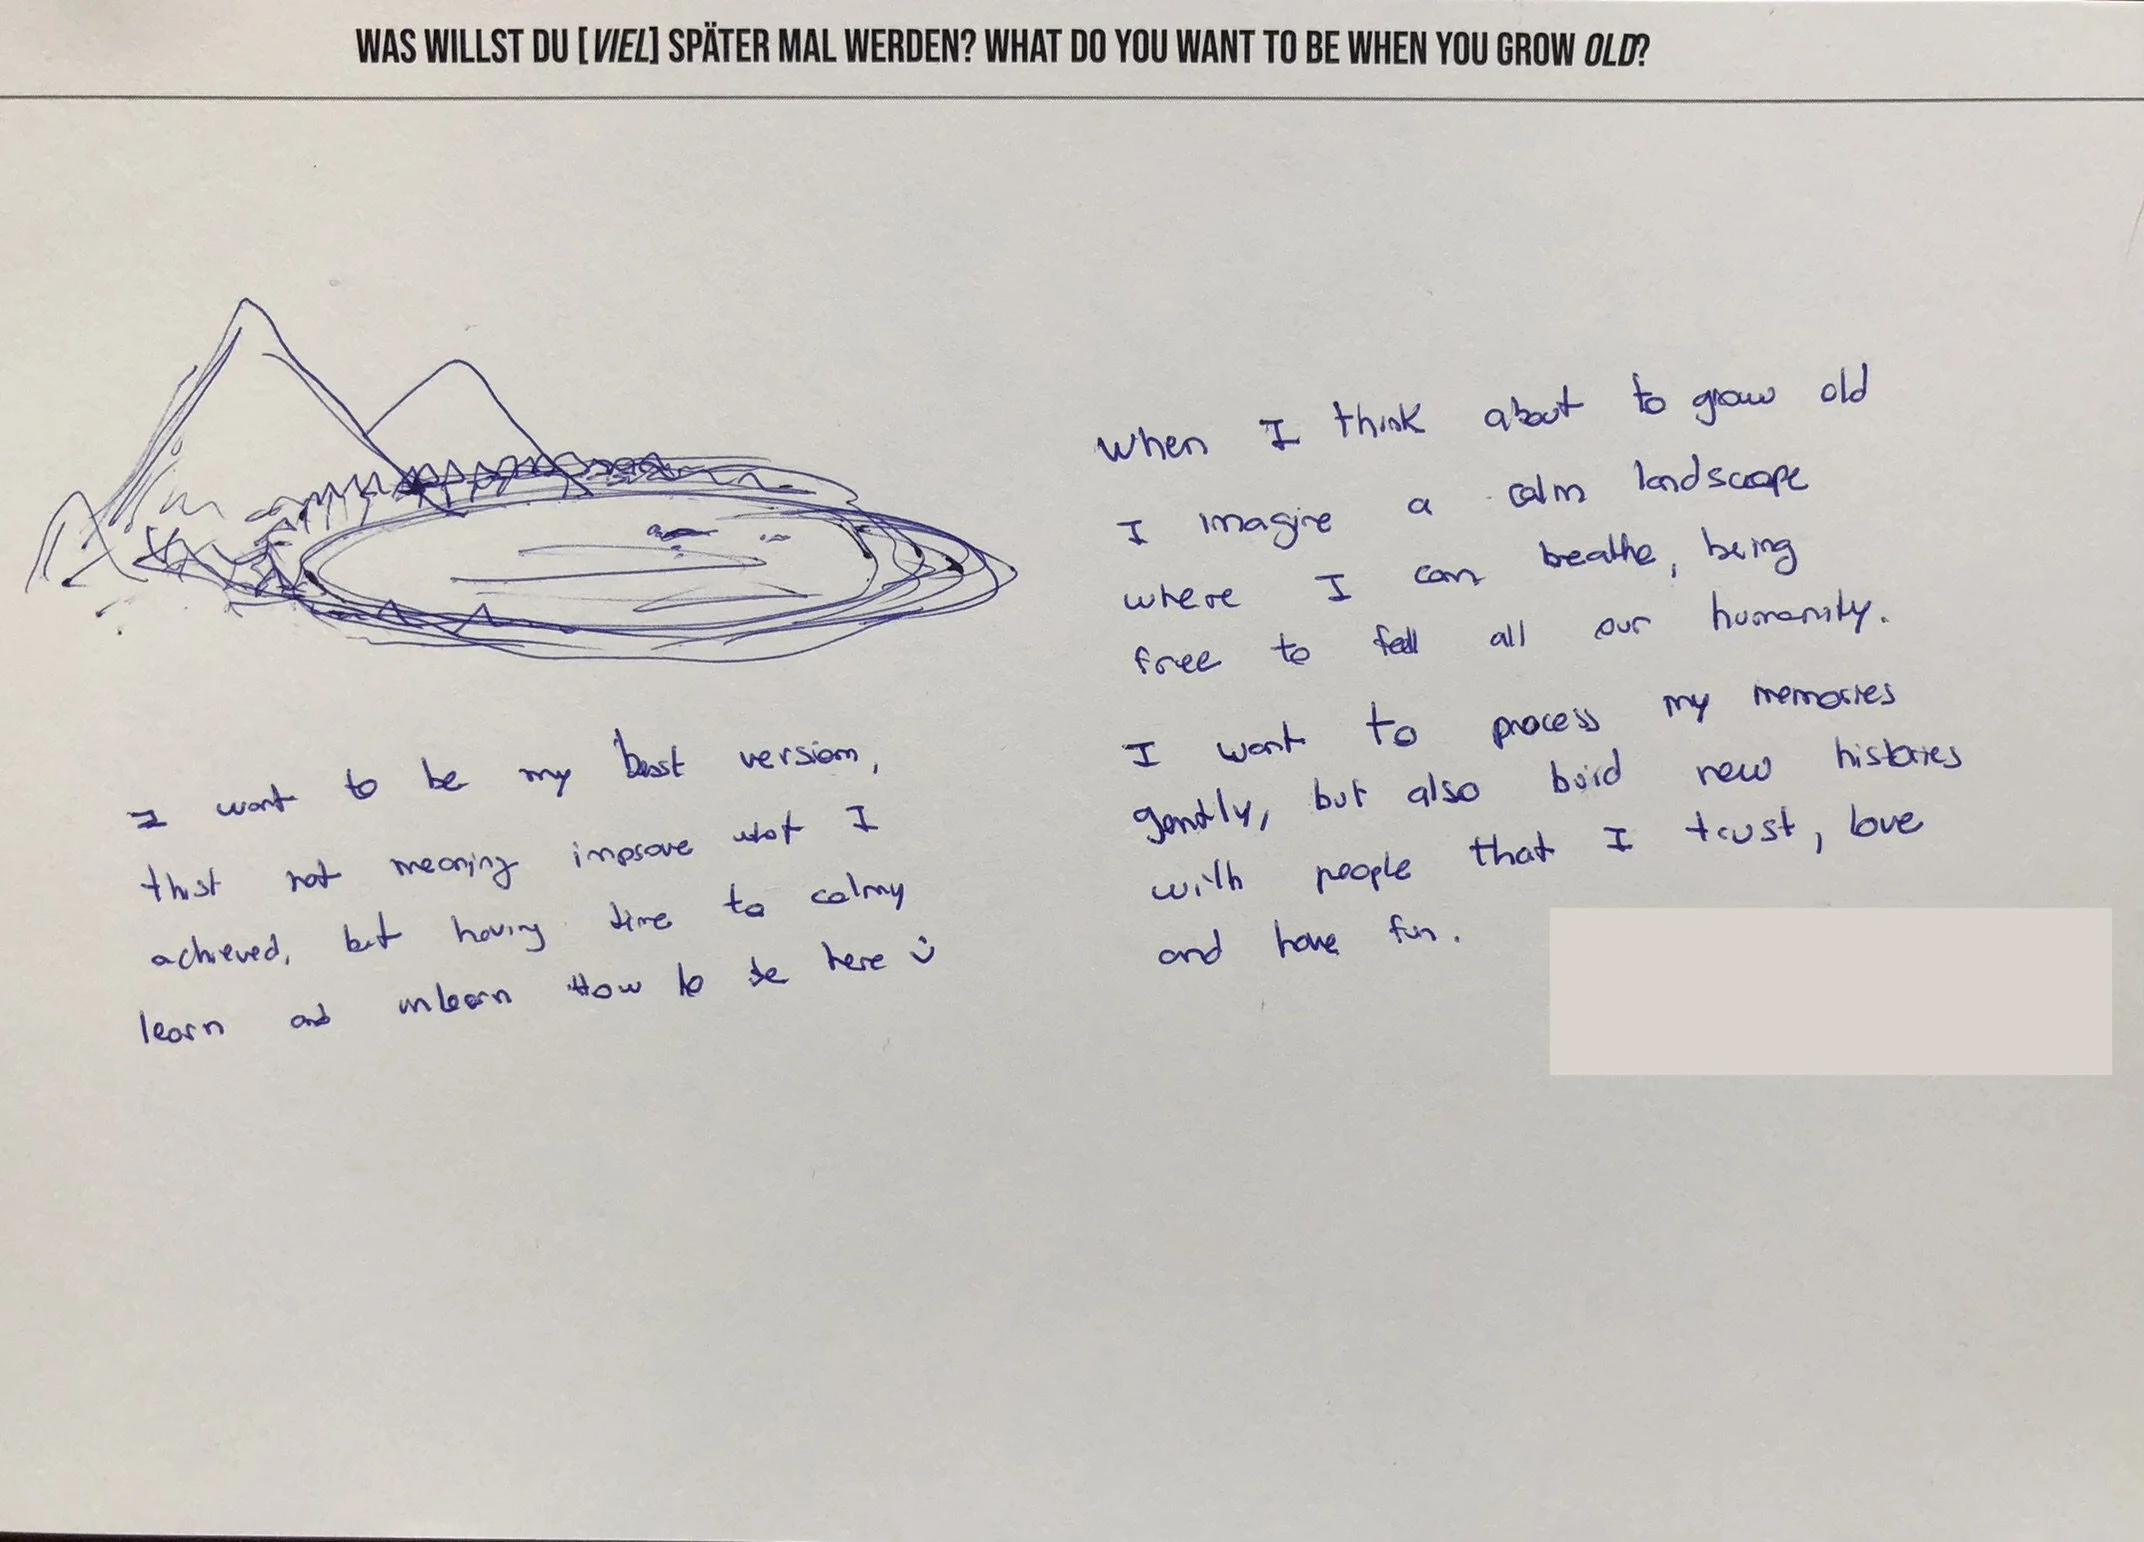 WAS WILLST DU [VIEL] SPÄTER MAL WERDEN? WHAT DO YOU WANT TO BE WHEN YOU GROW OLD?
I want to be my best version,
not meaning improve what I
achieved, but having time to calmy
learn and unlearn How to be here
When I think about to grow old
I imagine a calm landscape
where I can breathe, being
free to fell all our humanity.
I want to process my memories
gently, but also buid new histories
with people that I trust, love
and have fun.